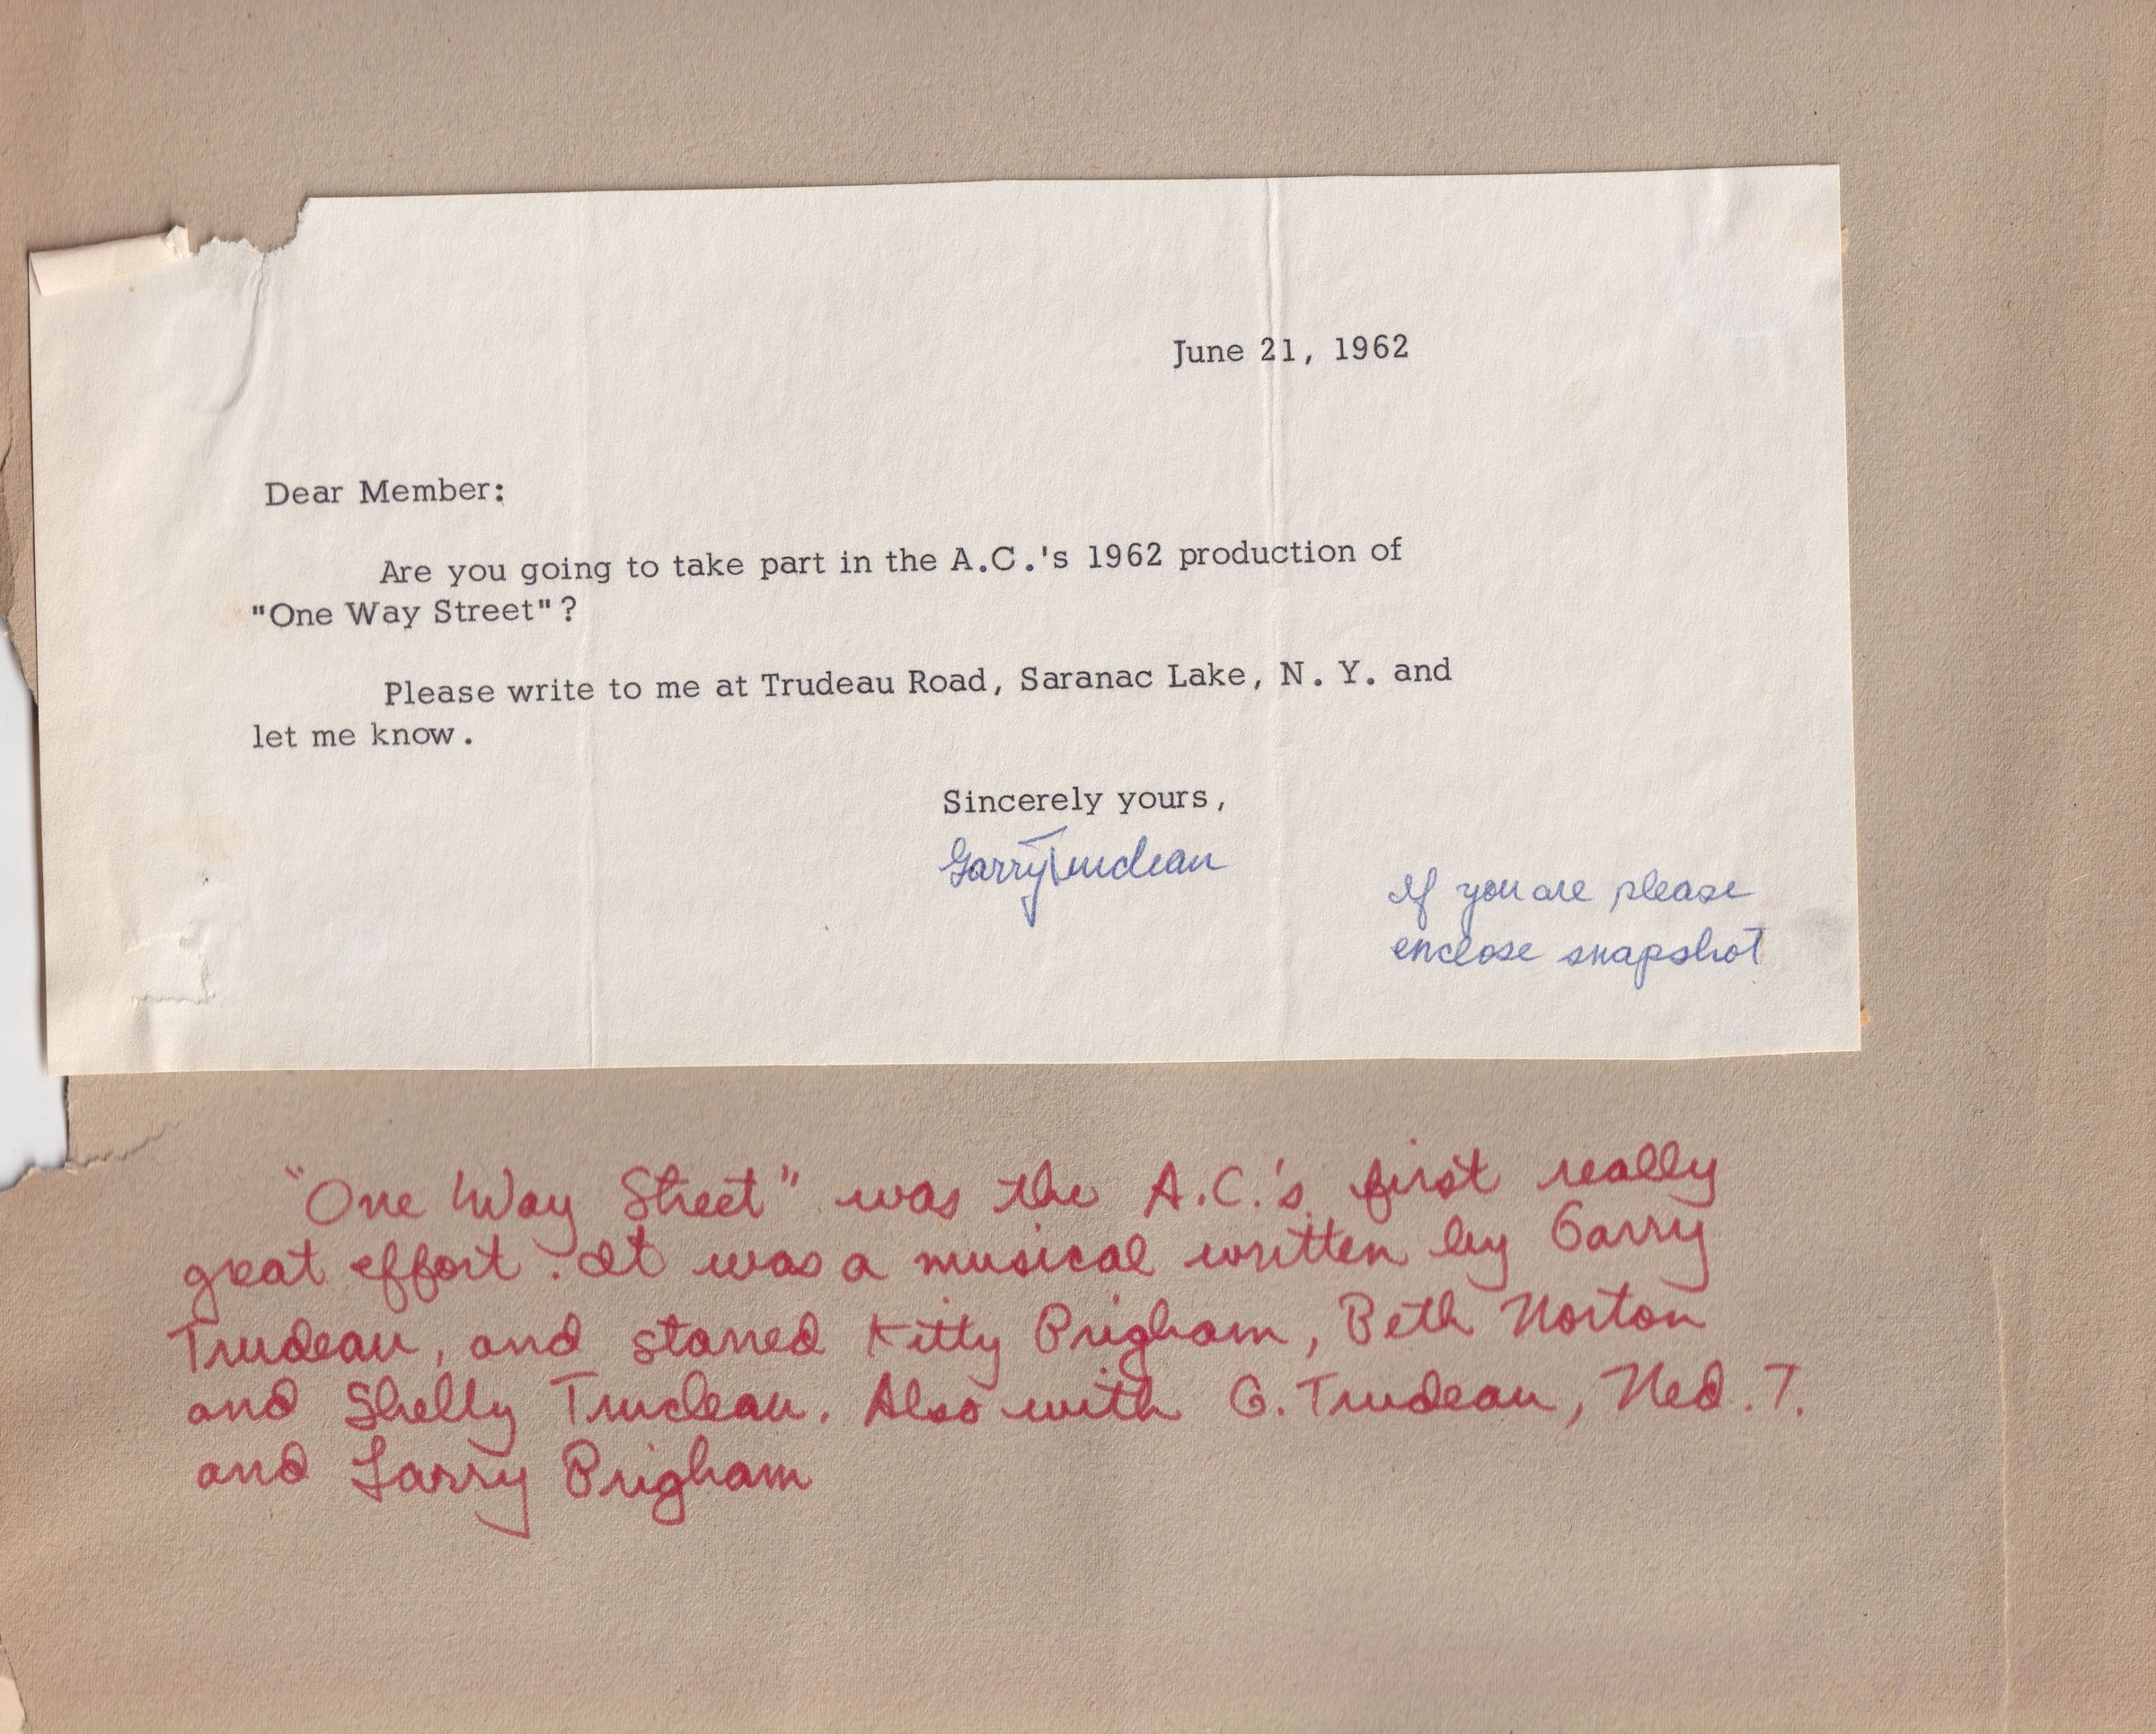 June 21, 1962
Dear Member:
Are you going to take part in the A.C.'s 1962 production of
"One Way Street"?
Please write to me at Trudeau Road, Saranac Lake, N. Y. and
let me know.
Sincerely yours,
Garry Trudeau
If you are please
enclose snapshot
"One Way Street" was the A.C.'s first really
great effort. It was a musical written by Garry
Trudeau, and starred Kitty Brigham, Beth Norton
and Shelly Trudeau. Also with G. Trudeau, Ned. T.
and Larry Brigham